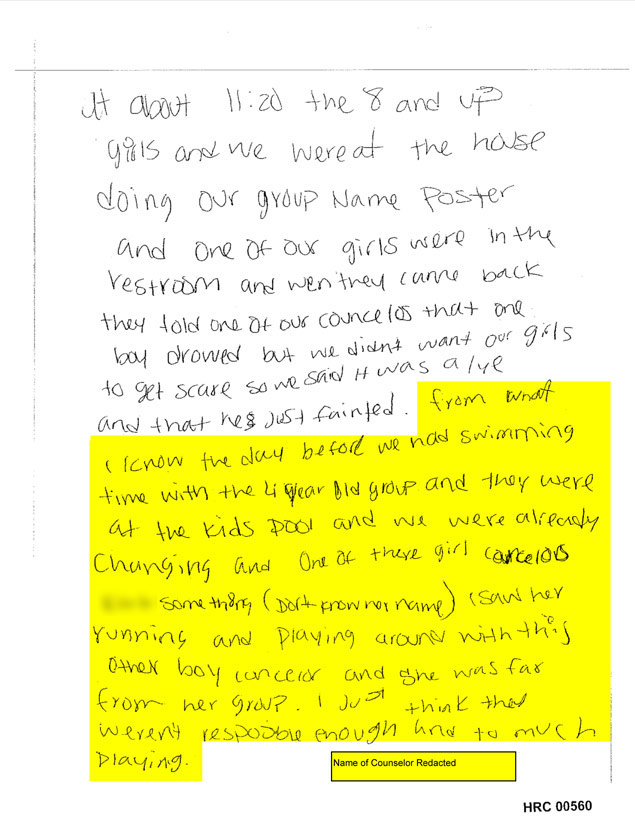 At about 11:20 the 8 and up
girls and we were at the house
doing our group Name Poster
and one of our girls were in the
restroom and wen they came back
they told one of our councelos that one
boy drowed but we didnt want our girls
to get scare so we said it was a lye
and that he's just fainted. from what
I know the day before we had swimming
time with the 4 year old group and they were
at the kids pool and we were already
Changing and One of there girl cancelors
something (Don't know her name) I saw her
running and playing around with this
other boy cancelor and she was far
from her group. I Just think they
weren't resposible enough and to much
playing.
Name of Counselor Redacted
HRC 00560